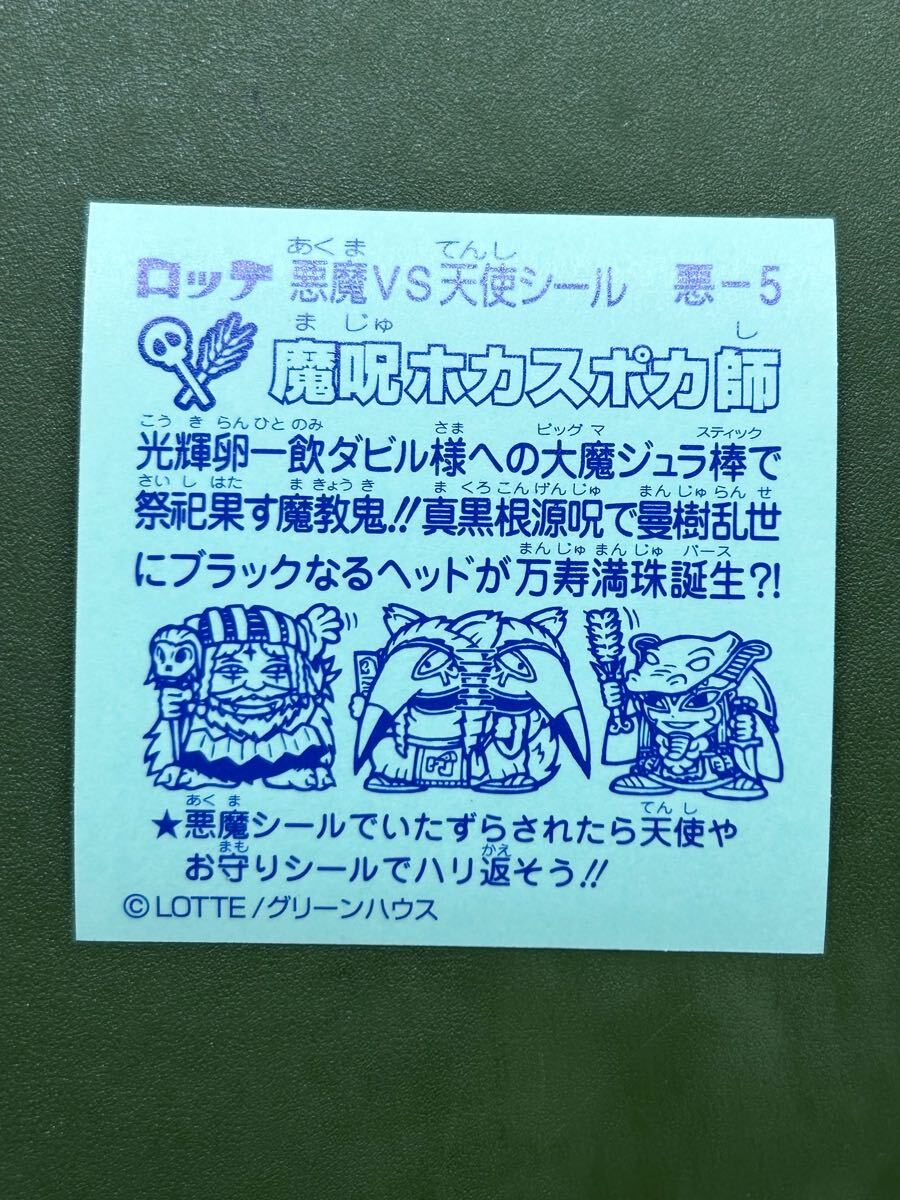 あくま てんし
ロッテ 悪魔VS天使シール 悪－5
まじゅ し
魔呪ホカスポカ師
こうきらんひとのみ さま ビッグマ スティック
光輝卵一飲ダビル様への大魔ジュラ棒で
さいしはた まきょうき まくろこんげんじゅ まんじゅらんせ
祭祀果す魔教鬼!!真黒根源呪で曼樹乱世
まんじゅまんじゅ バース
にブラックなるヘッドが万寿満珠誕生?!
あくま てんし
★悪魔シールでいたずらされたら天使や
まも かえ
お守りシールでハリ返そう!!
©LOTTE/グリーンハウス